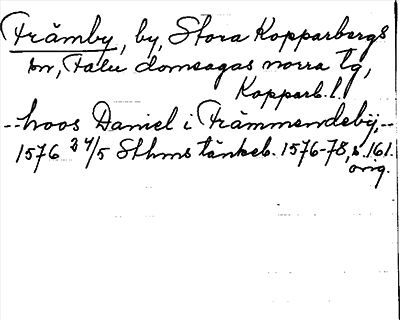 Främby, by, Stora Kopparbergs
sn, Falu domsagas norra tg,
Kopparb. l.
--hoos Daniel i Främmendeby,--
1576 24/5 Sthms tänkeb. 1576-78, s. 161.
orig.